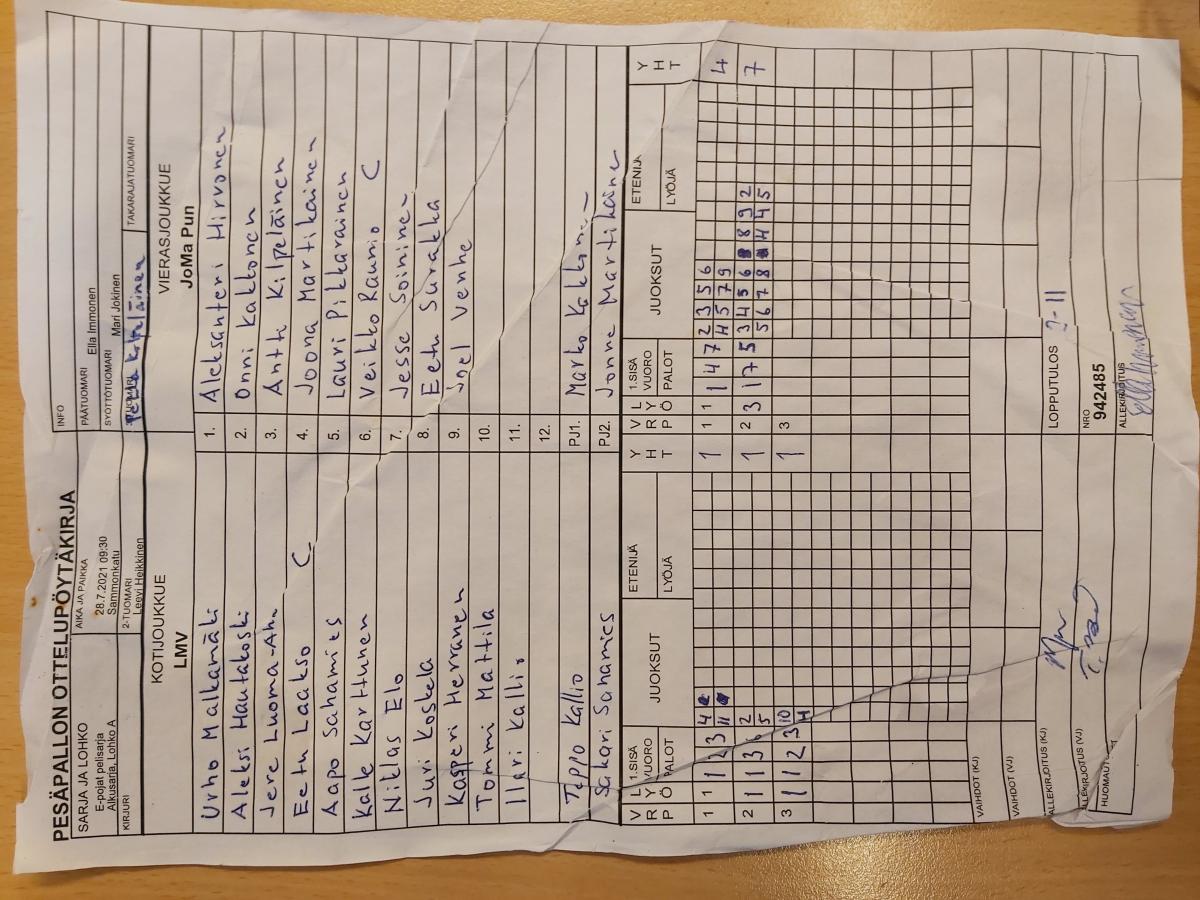 PESÄPALLON OTTELUPÖYTÄKIRJA
SARJA JA LOHKO
E-pojat pelisarja
Alkusarja, Lohko A
AIKA JA PAIKKA
28.7.2021 09:30
Sammonkatu
INFO
PÄÄTUOMARI
Ella Immonen
SYÖTTÖTUOMARI
Mari Jokinen
KIRJURI
2-TUOMARI
Leevi Heikkinen
TAKARAJATUOMARI
KOTIJOUKKUE
LMV
VIERASJOUKKUE
JoMa Pun
Urho Malkamäki 1. Aleksanteri Hirvonen
Aleksi Hautakoski 2. Onni Kakkonen
Jere Luoma-Aho 3. Antti Kilpeläinen
Eetu Laakso C 4. Joona Martikainen
Aapo Sahamies 5. Lauri Pikkarainen
Kalle Karttunen 6. Veikko Raunio C
Niklas Elo 7. Jesse Soininen
Juri Koskela 8. Eetu Surakka
Kasperi Herranen 9. Joel Venhe
Tommi Mattila 10.
Ilari Kallio 11.
12.
Teppo Kallio PJ1. Marko Kakkonen
Sakari Sahamies PJ2. Jonne Martikainen
V R P L Y Ö 1.SISÄ VUORO PALOT JUOKSUT ETENIJÄ LYÖJÄ Y H T V R P L Y Ö 1.SISÄ VUORO PALOT JUOKSUT ETENIJÄ LYÖJÄ Y H T
1 1 1 2 3 4 1 1 1 1 4 7 2 3 5 6 4
11 4 5 7 9
2 1 1 3 6 2 1 2 3 1 7 5 3 4 5 6 8 9 2 7
5 5 6 7 8 4 4 5
3 1 1 2 3 10 1 3
VAIHDOT (KJ)
VAIHDOT (VJ)
ALLEKIRJOITUS (KJ)
LOPPUTULOS 2-11
ALLEKIRJOITUS (VJ)
NRO
942485
HUOMAUT
ALLEKIRJOITUS